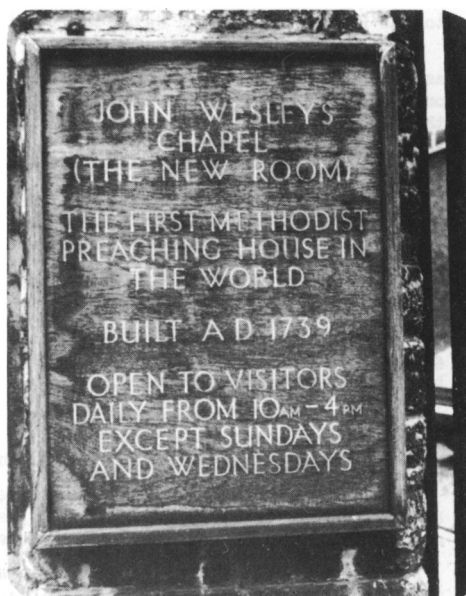 JOHN WESLEYS
CHAPEL
(THE NEW ROOM)
THE FIRST METHODIST
PREACHING HOUSE IN
THE WORLD
BUILT A D 1739
OPEN TO VISITORS
DAILY FROM 10AM - 4PM
EXCEPT SUNDAYS
AND WEDNESDAYS